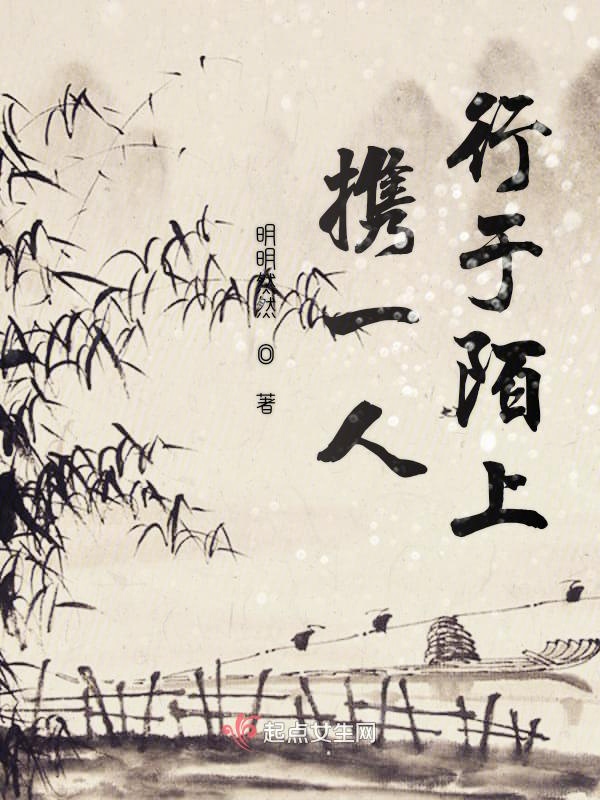 行于陌上
携一人
明明然然◎著
起点女生网